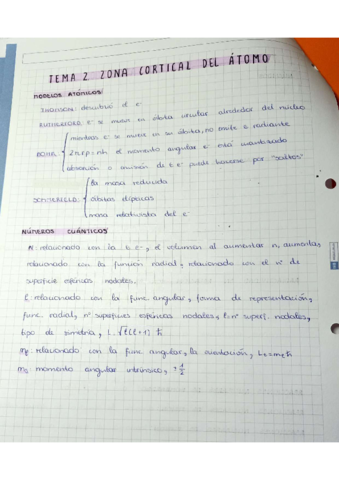 TEMA 2. ZONA CORTICAL DEL ÁTOMO
MODELOS ATÓMICOS
THOMSON: descubrió el e⁻
RUTHERFORD: e⁻ se mueve en órbita circular alrededor del núcleo
mientras e⁻ se mueva en su órbita, no emite E radiante
BOHR 2πrp = nh el momento angular e⁻ está cuantizado
absorción o emisión de E e⁻ puede hacerse por "saltos"
la masa reducida
SOMMERFELD órbitas elípticas
masa relativista del e⁻
NÚMEROS CUÁNTICOS
n: relacionado con la E e⁻, el volumen al aumentar n, aumenta,
relacionado con la función radial, relacionado con el nº de
superficie esféricas nodales.
l: relacionado con la func. angular, forma de representación,
func. radial, nº superficies esféricas nodales, l = nº superf. nodales,
tipo de simetría, L = √l(l+1) ħ
ml: relacionado con la func. angular, la orientación, Lz = ml ħ
ms: momento angular intrínseco, ± 1/2